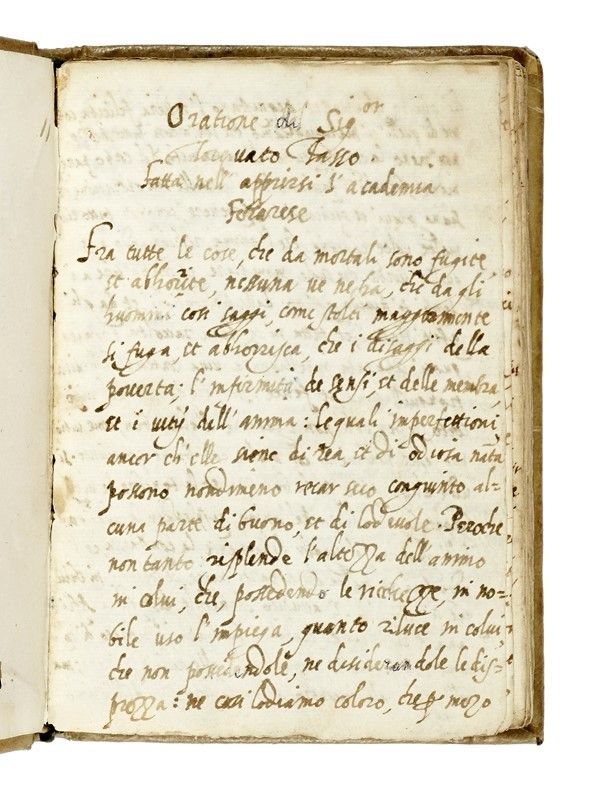 Oratione del Sig.or
Torquato Tasso
fatta nell' apprirsi l' academia
Ferrarese
Fra tutte le cose, che da mortali sono fugite
et abhorite, nessuna ve ne ha, che da gli
huomini cosi saggi, come stolti maggiormente
si fuga, et abhorrisca, che i disaggi della
poverta; l' infirmità de sensi, et delle membra
et i vitij dell' anima: lequali imperfettioni
ancor ch' elle siene di rea, et di odiosa nata
possono nondimeno recar seco congiunto al-
cuna parte di buono, et di lodevole. Peroche
non tanto risplende l'altezza dell'animo
in colui, che, possedendo le ricchezze, in no-
bile uso l'impiega, quanto riluce in colui,
che non possedendole, ne desiderandole le dis-
prezza: ne cosi lodiamo coloro, che p mezo